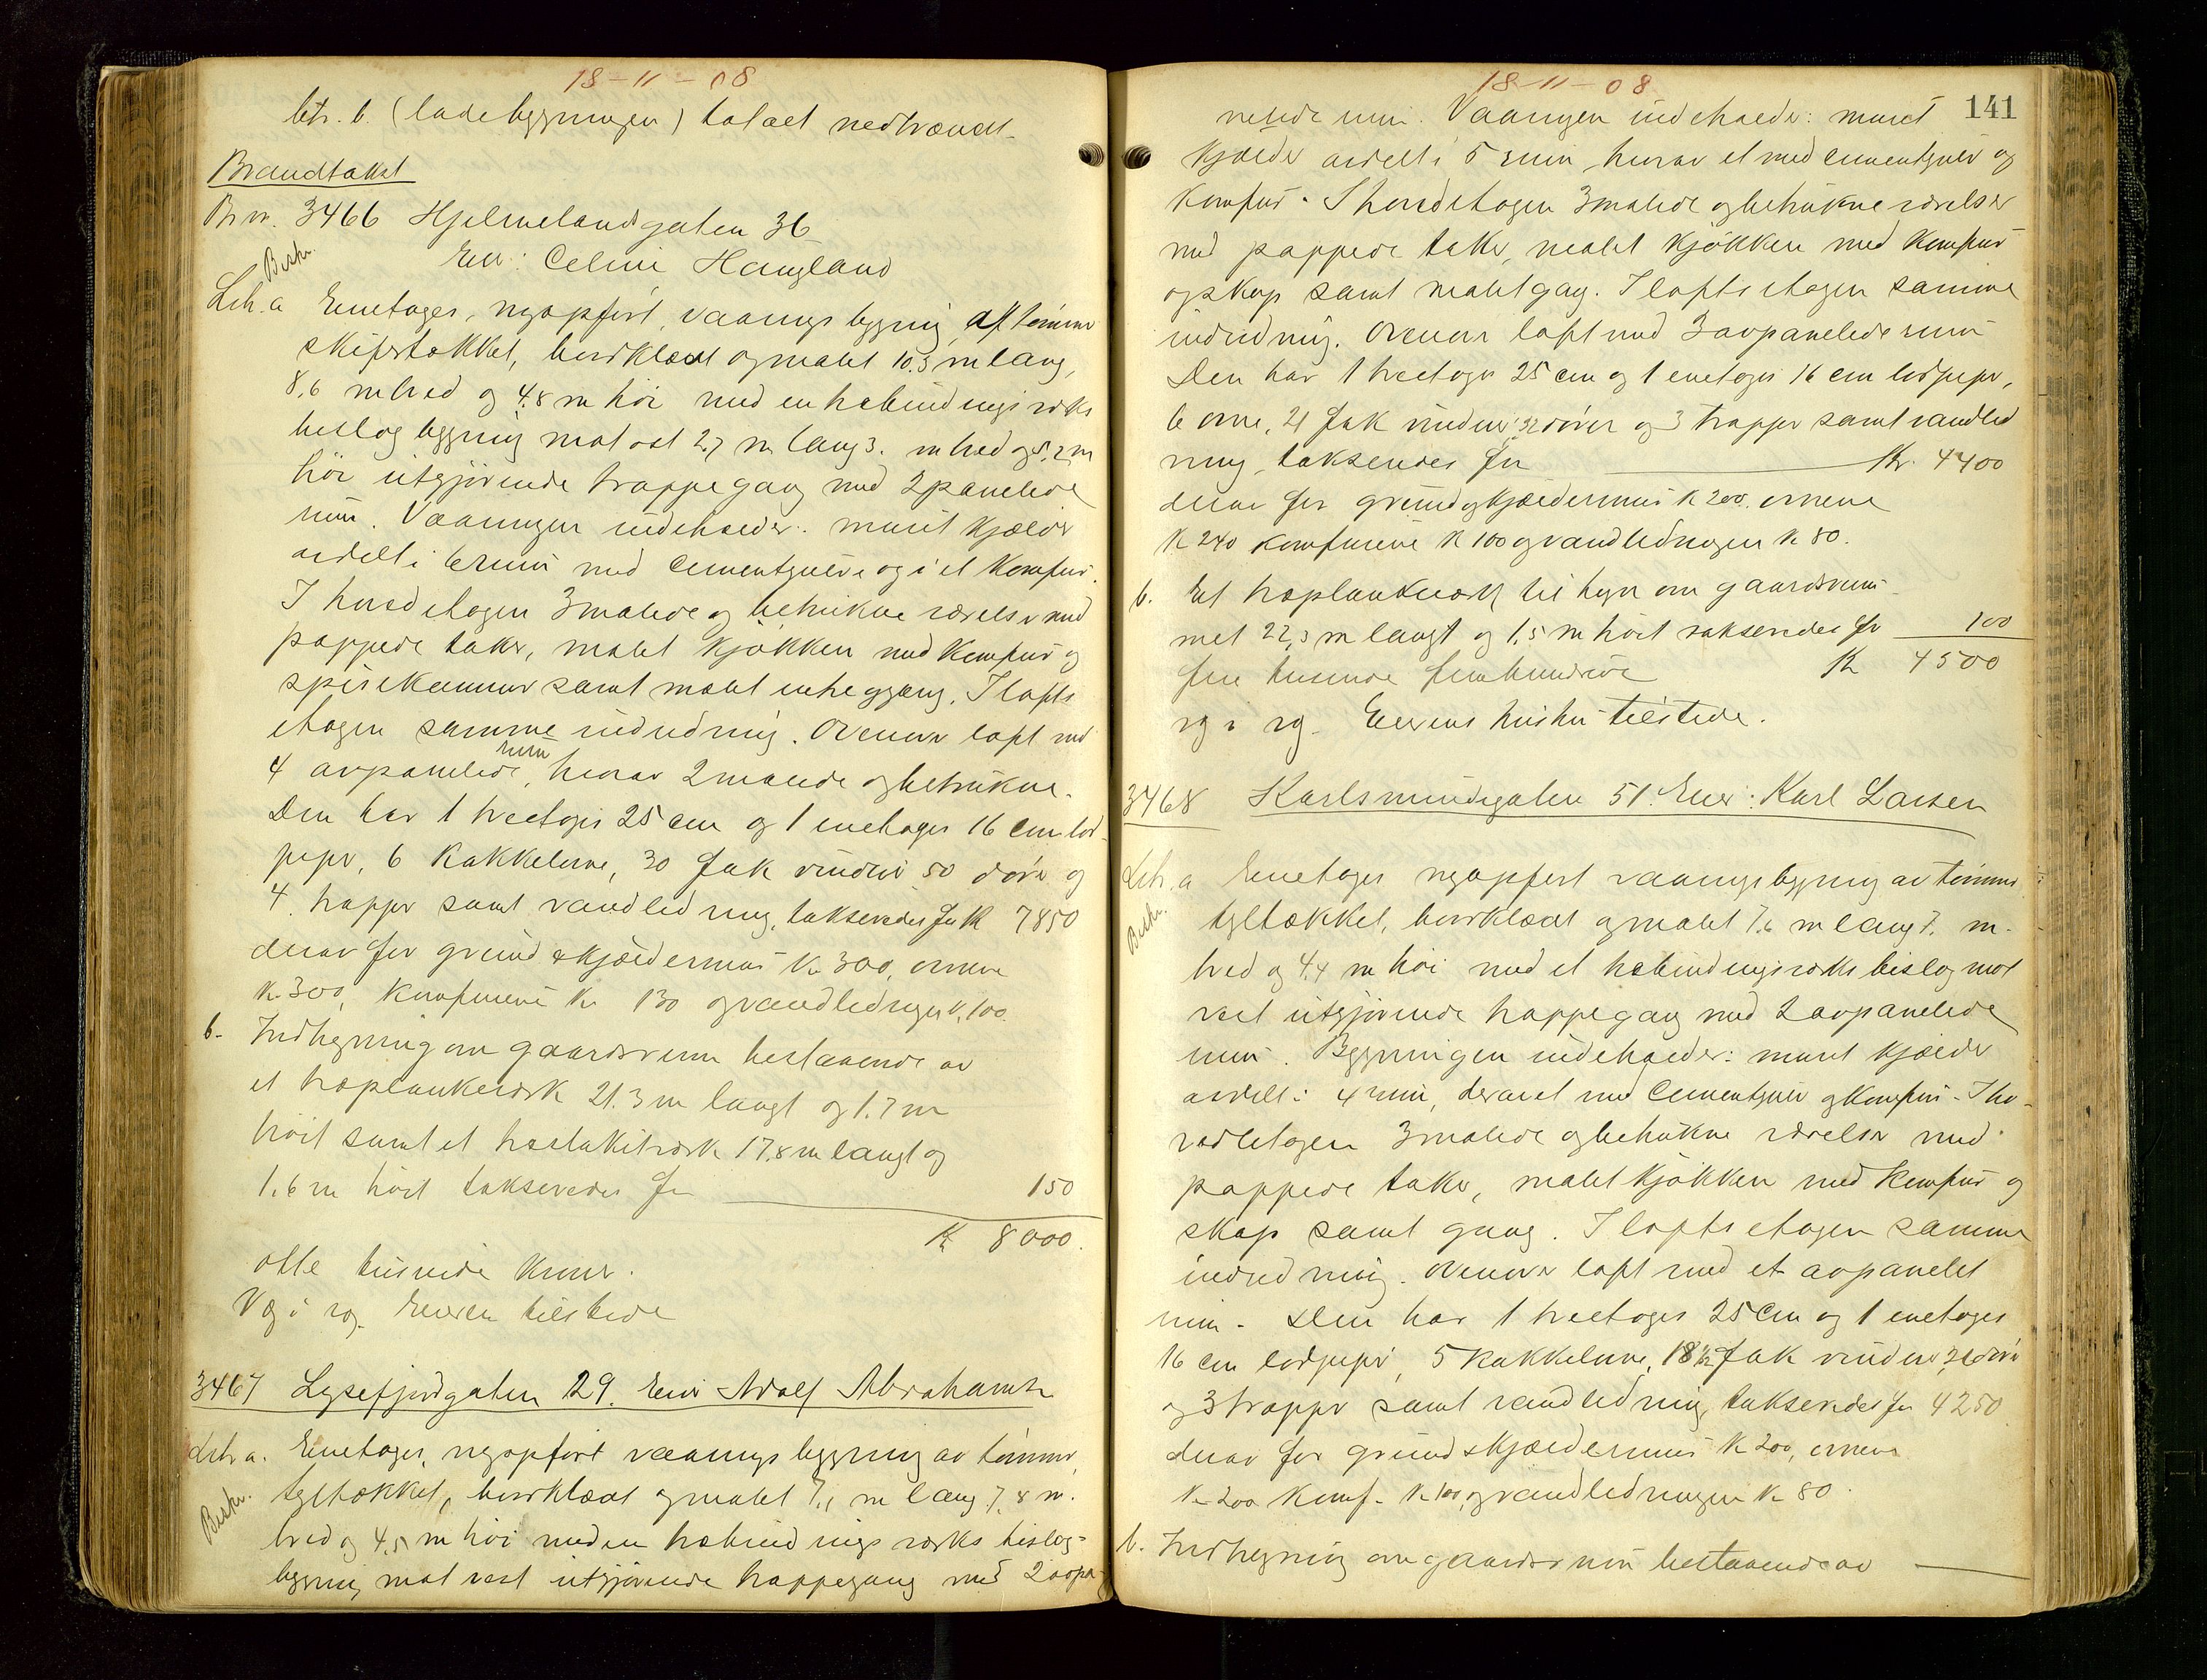 18-11-08
litr. b. (ladebygningen) totalt nedbrændt
Brandtakst
Br.nr. 3466 Hjelmelandsgaten 36
Beskr. Eier: Celine Haugland
Litr. a Enetages, nyopført, vaaningsbygning, af tømmer
skifertækket, bordklædt og malet 10.3 m lang,
8,6 m bred og 4.8 m høi med en træbindingsværks
bislagbygning mot øst 2,7 m lang 3. m bred og 5,2 m
høi utgjørende trappegang med 2 panelede
rum. Vaaningen indeholder: muret kjælder
avdelt i 6 rum med cementgulve og i et komfur.
I hovedetagen 3 malede og betrukne værelser med
pappede taker, malet kjøkken med komfur og
spisekammer samt malet indregang. I lofts
etagen samme indredning. Ovenover loft med
4 avpanelede rum, hvorav 2 malede og betrukne.
Den har 1 treetages 25 cm og 1 enetages 16 cm lod-
pipe, 6 kakkelovne, 30 fak vinduer 50 døre og
4 trapper samt vandledning, takseredes for Kr 7850
derav for grund & kjældermur Kr 300, ovnene
Kr. 300, komfurene Kr 130 og vandledningen Kr. 100.
b. Indhegning om gaardsrum bestaaende av
et træplankeværk 21.3 m langt og 1.7 m
høit samt et træstakitværk 17.8 m langt og
1.6 m høit takseredes for 150
Kr 8000.
otte tusinde kroner.
V æ i v og. Eieren tilstede
3467 Lysefjordgaten 29. Eier Adolf Abrahamsen
Litr a. Enetages, nyopført vaaningsbygning av tømmer,
Beskr. tegltækket, bordklædt og malet 7,1 m lang 7,8 m.
bred og 4,5 m høi med en træbindingsværks bislag-
bygning mot vest utgjørende trappegang med 2 avpa-
18-11-08
141
nelede rum. Vaaningen indeholder: muret
kjælder avdelt i 5 rum, hvorav et med cementgulv og
komfur. I hovedetagen 3 malede og betrukne værelser
med pappede taker, malet kjøkken med komfur
og skap samt malet gang. I loftsetagen samme
indredning. Ovenover loft med 3 avpanelede rum
Den har 1 treetages 25 cm og 1 enetages 16 cm lodpipe,
6 ovne, 21 fak vinduer, 32 døre og 3 trapper samt vandled
ning, takseredes for Kr. 4400
derav for grund og kjældermur Kr 200, ovnene
Kr 240 komfurene Kr 100 og vandledningen Kr 80.
b. Et træplankeværk til hegn om gaardsrum-
met 22,3 m langt og 1,5 m høit takseredes for 100
fire tusinde femhundrede Kr 4500
v æ i v æ. Eierens hustru tilstede.
3468 Karlsmindegaten 51. Eier: Karl Larsen
Litr. a Enetages nyopført vaaningsbygning av tømmer
Beskr. tegltækket, bordklædt og malet 7.6 m lang 7. m.
bred og 4.4 m høi med et træbindingsværks bislag mot
vest utgjørende trappegang med 2 avpanelede
rum. Bygningen indeholder: muret kjælder
avdelt i 4 rum, derav et med cementgulv og komfur. I ho-
vedetagen 3 malede og betrukne værelser med
pappede taker, malet kjøkken med komfur og
skap samt gang. I loftsetagen samme
indredning. Ovenover loft med et avpanelet
rum. Den har 1 treetages 25 cm og 1 enetages
16 cm lodpipe, 5 kakkelovne, 18 1/2 fak vinduer, 31 døre
og 3 trapper samt vandledning, takseredes for 4250
derav for grund & kjældermur Kr 200, ovnene
Kr 200 komf. Kr 100, og vandledningen Kr 80.
b. Indhegning om gaardsrum bestaaende av